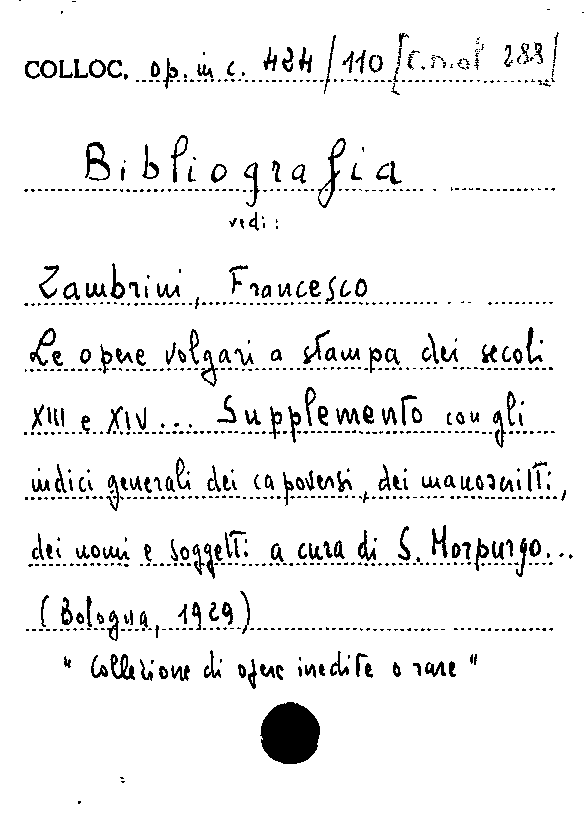 COLLOC. op. in c. 424/110 [C.n.of 288]
Bibliografia
vedi:
Zambrini, Francesco
Le opere volgari a stampa dei secoli
XIII e XIV... Supplemento con gli
indici generali dei capoversi, dei manoscritti,
dei nomi e soggetti a cura di S. Morpurgo...
(Bologna, 1929)
"Collezione di opere inedite o rare"